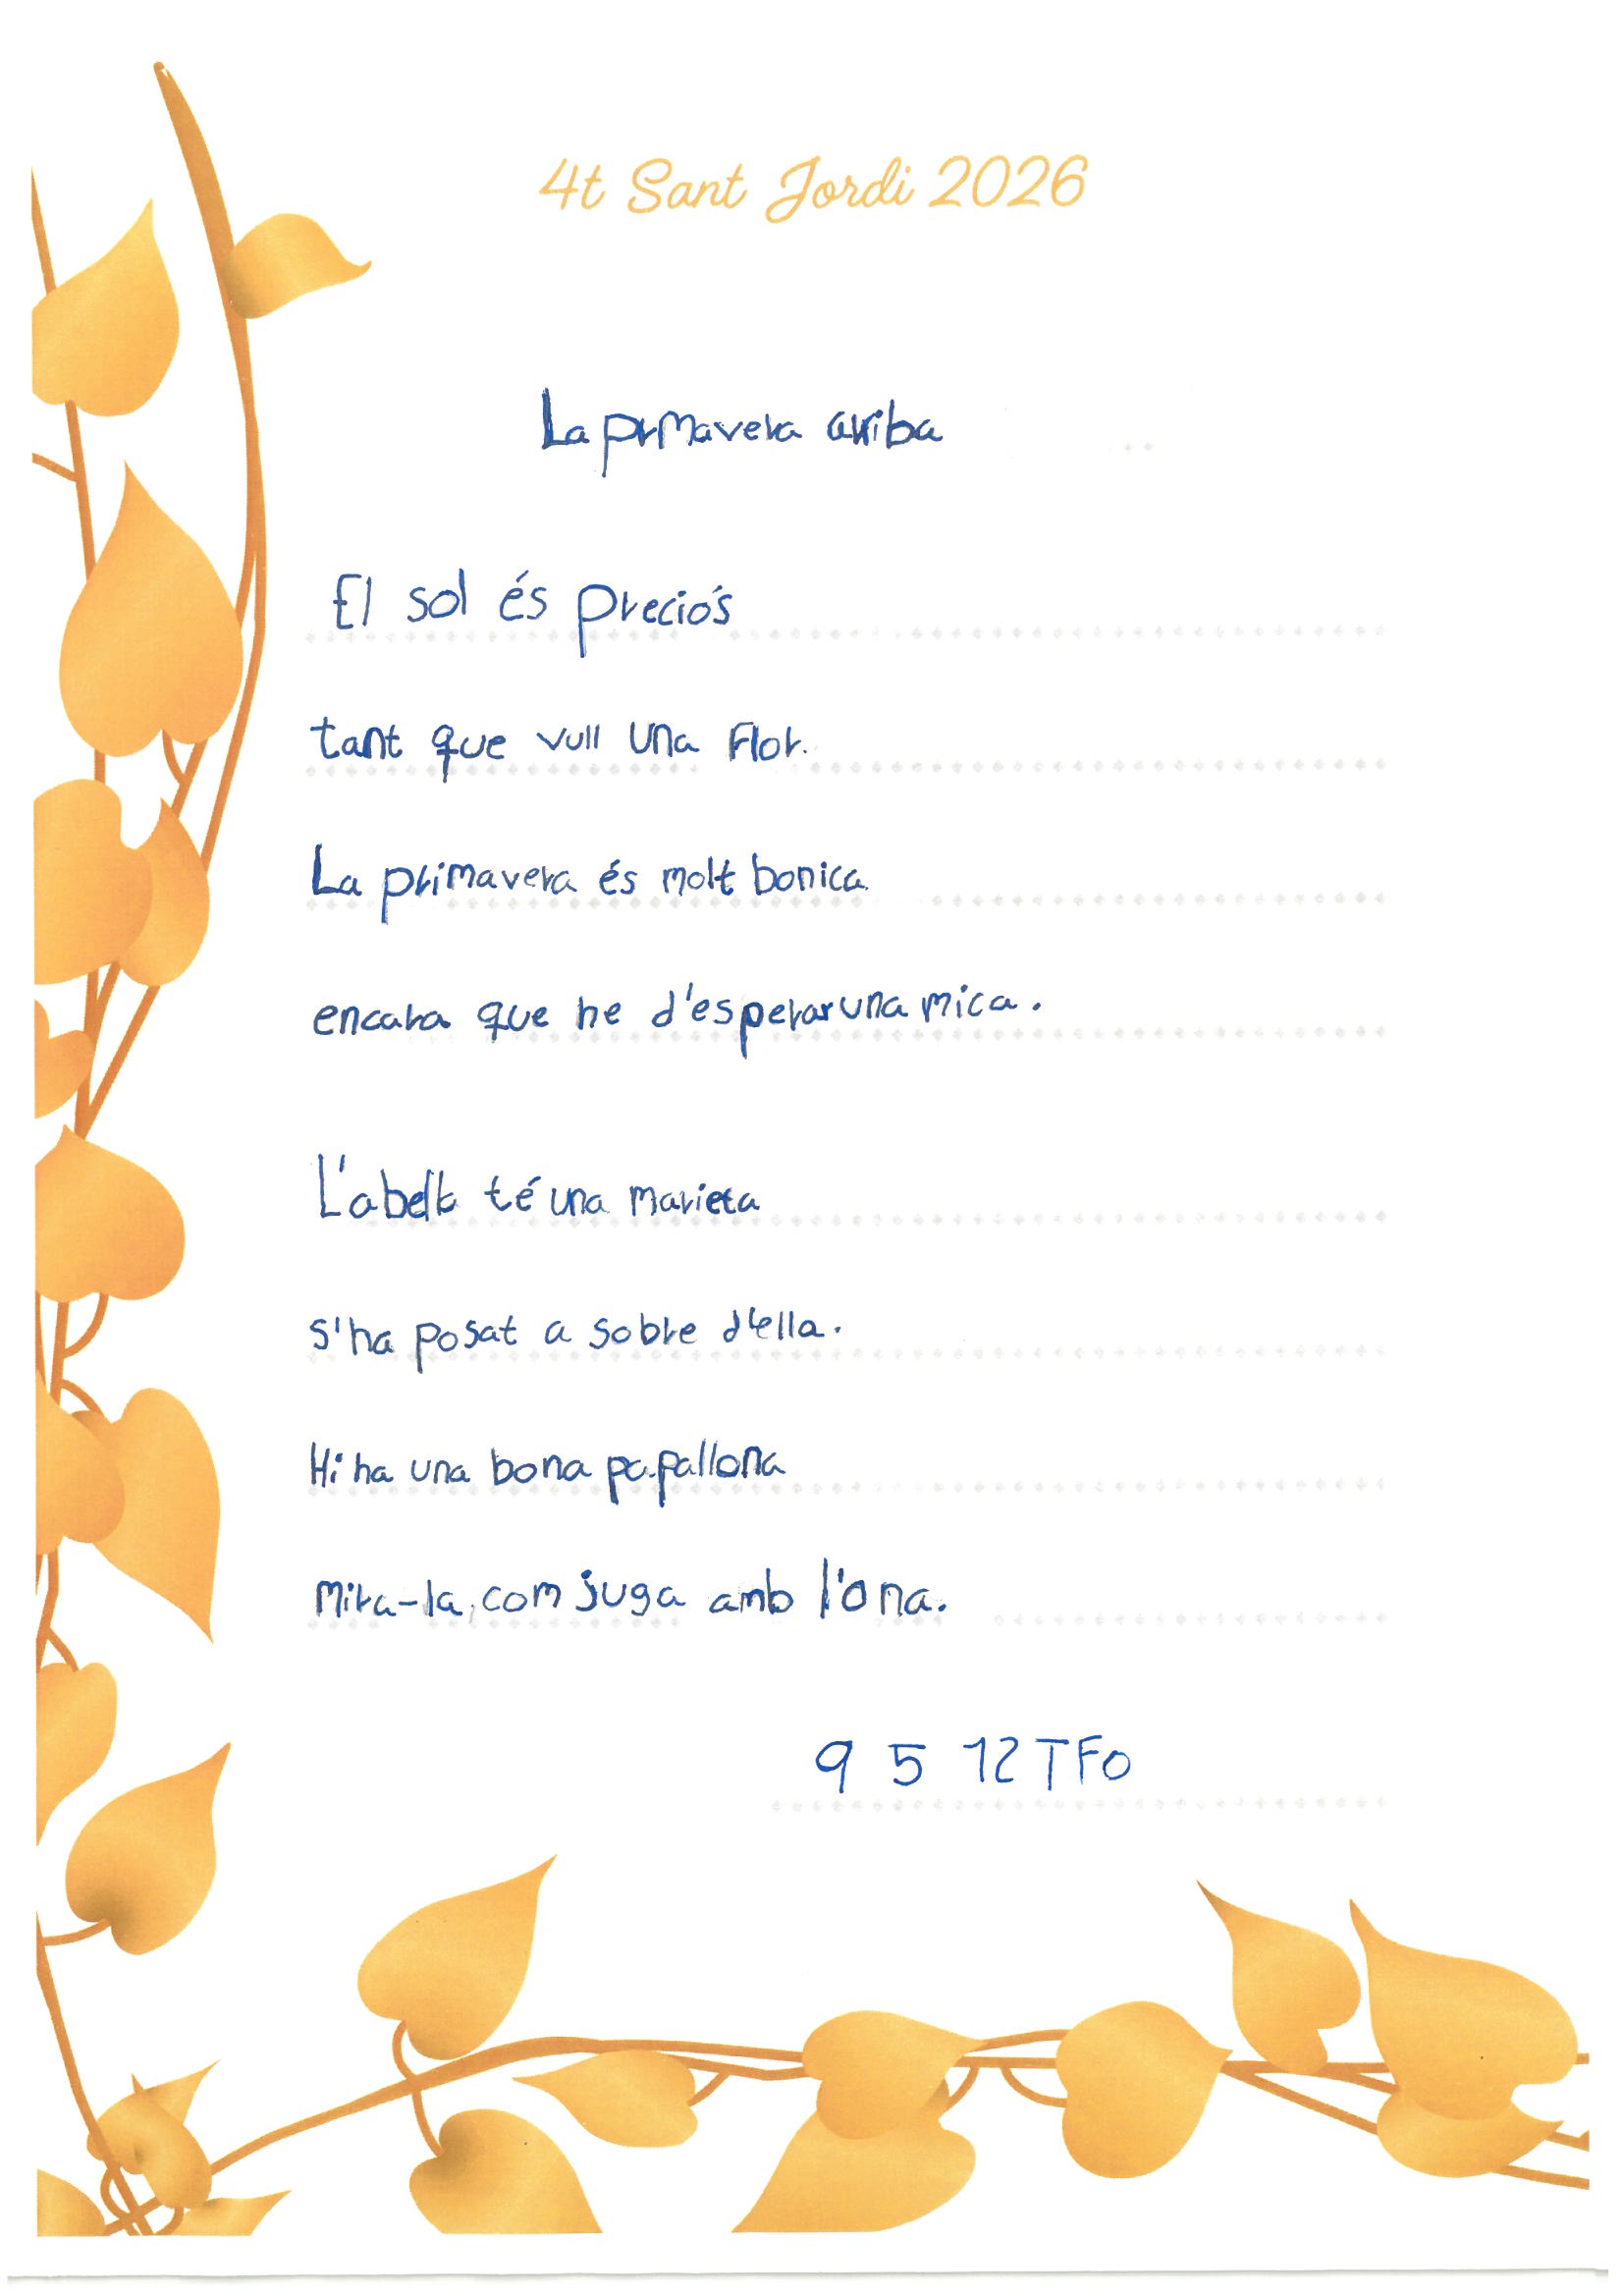 4t Sant Jordi 2026
La primavera arriba
El sol és preciós
tant que vull una flor.
La primavera és molt bonica
encara que he d'esperar una mica.
L'abella té una marieta
s'ha posat a sobre d'ella.
Hi ha una bona papallona
mira-la, com juga amb l'ona.
9 5 12 TFO